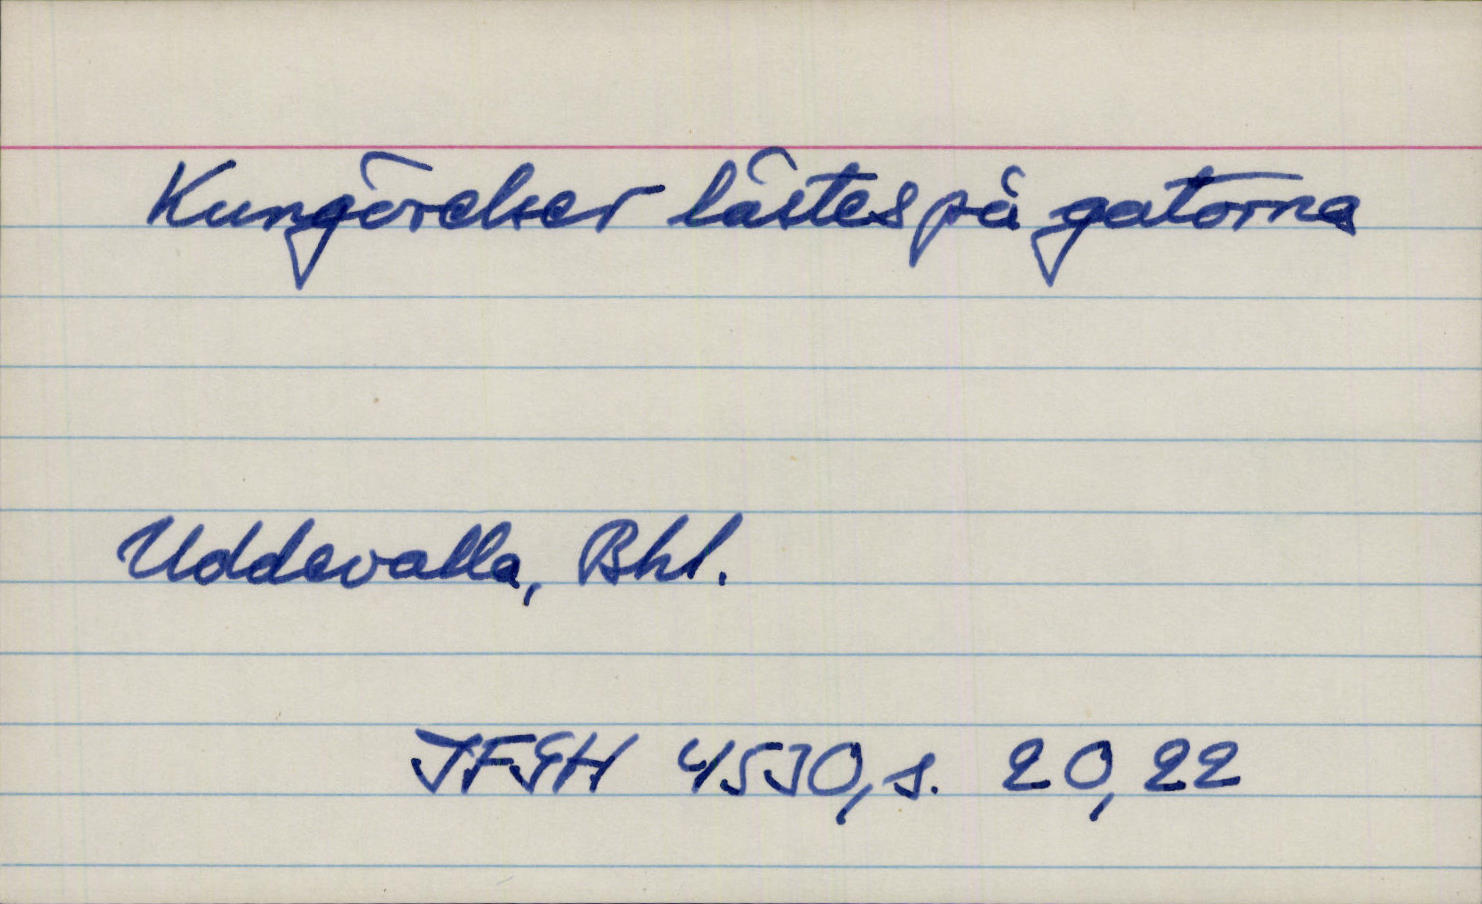 Kungörelser lästes på gatorna
Uddevalla, Bhl.
IFGH 4530, s. 20, 22